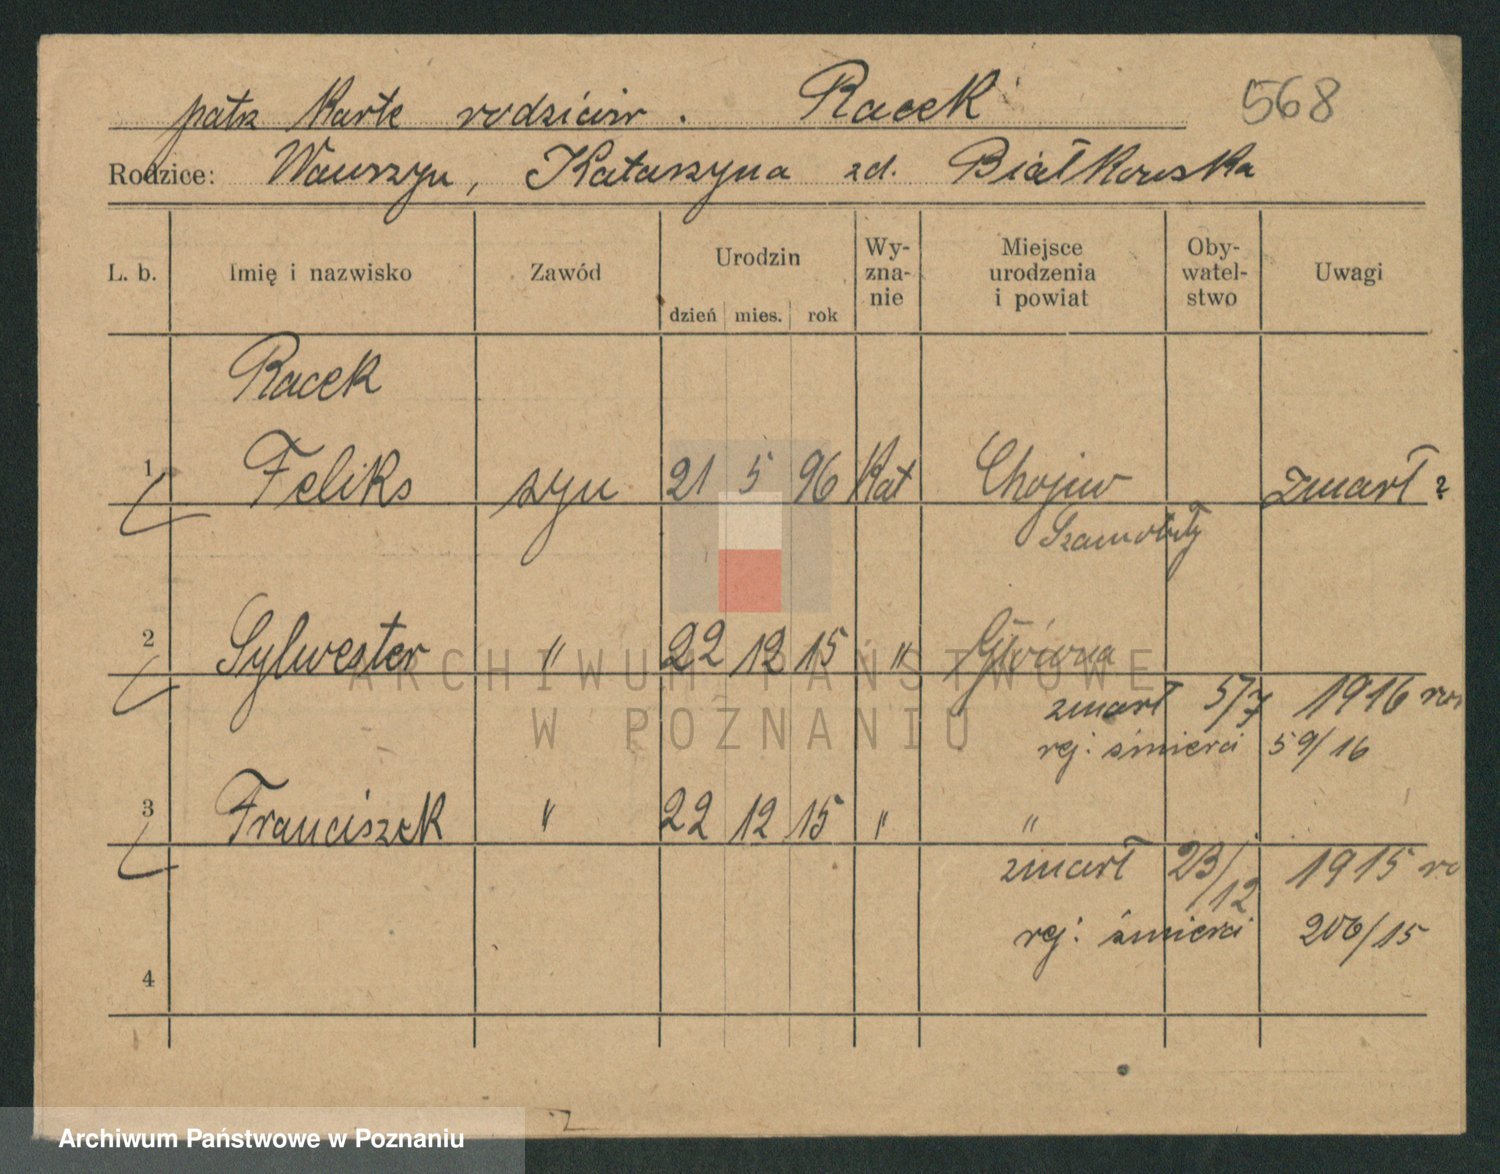 patrz Karte rodziców. Racek 568
Rodzice: Wawrzyn, Katarzyna zd. Białkowska
L. b. Imię i nazwisko Zawód Urodzin dzień mies. rok Wyznanie Miejsce urodzenia i powiat Obywatelstwo Uwagi
Racek
1 Feliks syn 21 5 96 Kat Chojno zmarł ?
Szamotuły
2 Sylwester " 22 12 15 " Główna
zmarł 5/7 1916
rej: śmierci 59/16
3 Franciszek " 22 12 15 " "
zmarł 23/12 1915
rej: śmierci 206/15
4
ARCHIWUM PAŃSTWOWE
W POZNANIU
Archiwum Państwowe w Poznaniu